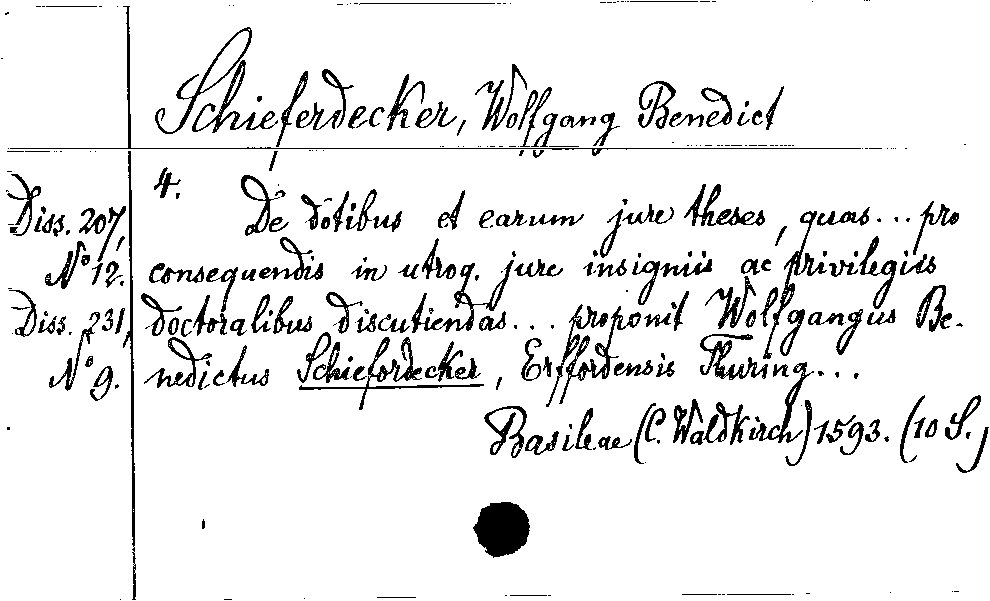 Schieferdecker, Wolfgang Benedict
4.
Diss. 207, De dotibus et earum jure theses, quas... pro
No 12. consequendis in utroq. jure insigniis ac privilegiis
Diss. 231, doctoralibus discutiendas... proponit Wolfgangus Be-
No 9. nedictus Schieferdecker, Erffordensis Thuring...
Basileae (C. Waldkirch) 1593. (10 S.)